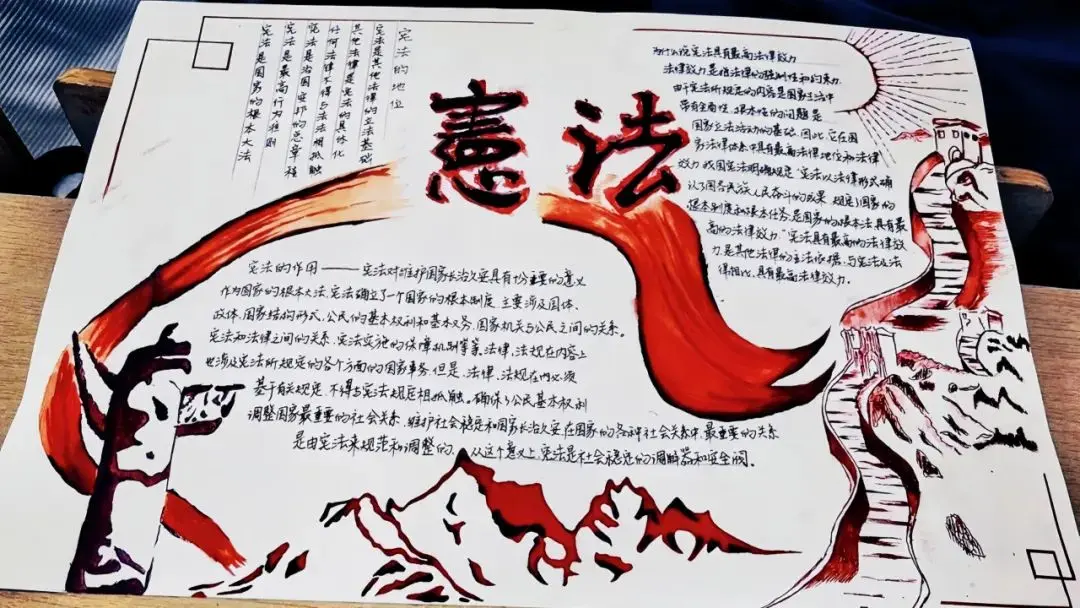 憲法
宪法的地位
宪法是其他法律的立法基础
其他法律是宪法的具体化
任何法律不得与法法相抵触
宪法是治国安邦的总章程
宪法是最高行为准则
宪法是国家的根本大法
为什么说宪法具有最高法律效力
法律效力是指法律的强制性和约束力.
由于宪法所规定的内容是国家生活中
带有全局性、根本性的问题是
国家立法活动的基础.因此,它在国
家法律体系中具有最高法律地位和法律
效力.我国宪法明确规定"宪法以法律形式确
认了国各民族人民奋斗的成果.规定了国家的
根本制度和根本任务.是国家的根本法.具有最
高的法律效力."宪法具有最高的法律效
力.是其他法律的立法依据.与宪法及法
律相比,具有最高法律效力.
宪法的作用——宪法对维护国家长治久安具有十分重要的意义
作为国家的根本大法,宪法确立了一个国家的根本制度.主要涉及国体、
政体、国家结构形式,公民的基本权利和基本义务、国家机关与公民之间的关系。
宪法和法律之间的关系、宪法实施的保障机制等等.法律、法规在内容上
也涉及宪法所规定的各个方面的国家事务.但是、法律、法规在内必须
基于有关规定.不得与宪法规定相抵触。确保与公民基本权利
调整国家最重要的社会关系.维护社会稳定和国家长治久安.在国家的各种社会关系中.最重要的关系
是由宪法来规范和调整的.从这个意义上,宪法是社会稳定的调解器和安全阀。